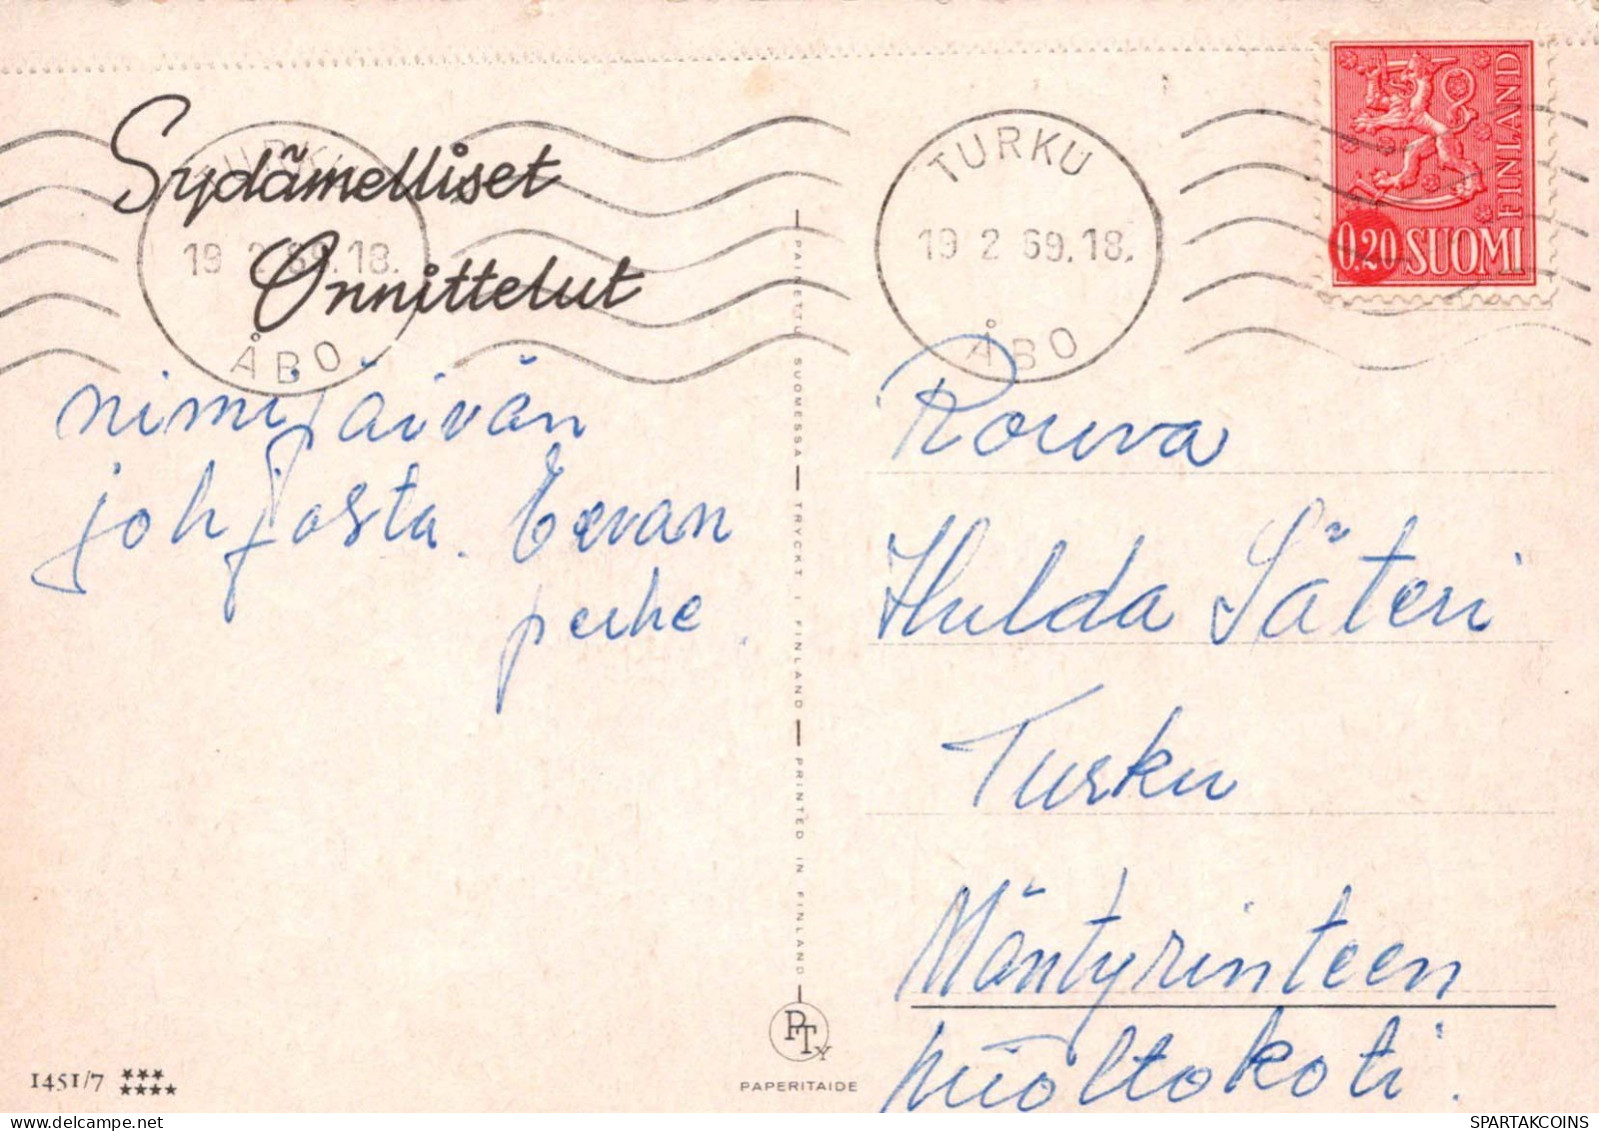 Sydämelliset
Onnittelut
TURKU
19 2 69.18.
ÅBO
TURKU
19 2 69.18.
ÅBO
0.20 SUOMI
FINLAND
nimipäivän
johdosta. Eevan
perhe.
PAINETTU SUOMESSA — TRYCKT I FINLAND — PRINTED IN FINLAND
Rouva
Hulda Säteri
Turku
Mäntyrinteen
huoltokoti.
PTy
PAPERITAIDE
1451/7
SPARTAKCOINS